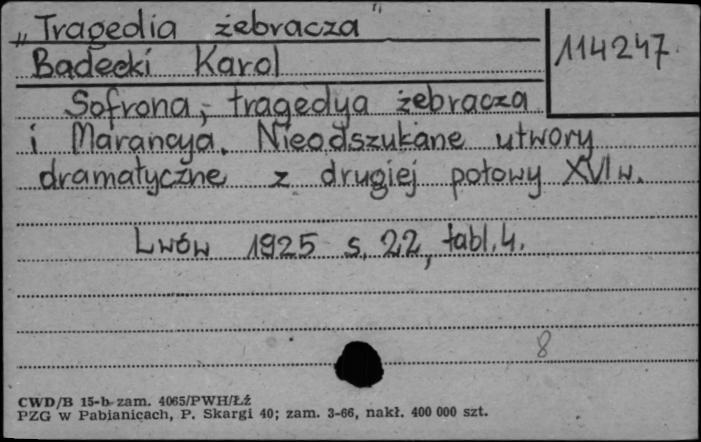 „Tragedia żebracza"
114247
Badecki Karol
Sofrona, tragedya żebracza
i Marancya. Nieodszukane utwory
dramatyczne z drugiej połowy XVI w.
Lwów 1925 s. 22, tabl. 4.
8
CWD/B 15-b zam. 4065/PWH/Łź
PZG w Pabianicach, P. Skargi 40; zam. 3-66, nakł. 400 000 szt.